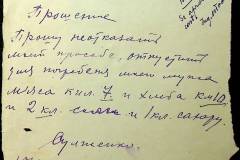 Прошение
Прошу неотказать
моей просьбе, отпустит
для погребеня моего мужа
мяса кил. 7 и хлеба кил 10
и 2 кл. и 1 кл. сахару.